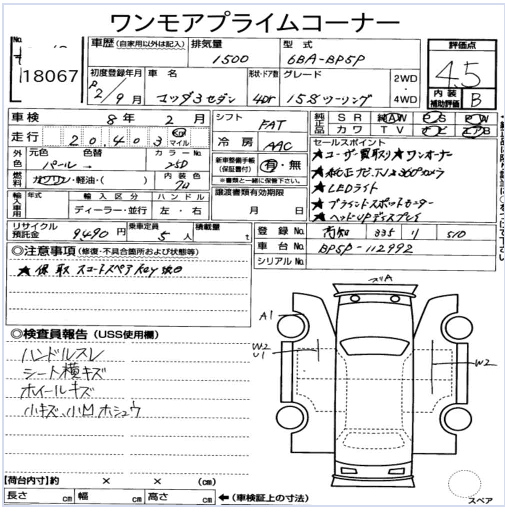 ワンモアプライムコーナー
No.
18067
車歴 (自家用以外は記入) 排気量 1500 型式 6BA-BP5P
評価点 4.5
初度登録年月 R2/9月 車名 マツダ3セダン 形状・ドア数 4DR グレード 15Sツーリング 2WD・4WD
内装補助評価 B
車検 8年 2月
走行 20,403 km マイル
シフト FAT
冷房 AAC
純正品 SR 純AW PS PW
カワ TV ナビ エアB
外色 元色 パール 色替 カラーNo. 25D
燃料 ガソリン・軽油・( ) 内装色
新車整備手帳(保証書付) 有・無
※書類と一緒に保管下さい
セールスポイント
★ユーザー買取り★ワンオーナー
★純正ナビTV 360°カメラ
★LEDライト
★ブラインドスポットモニター
★ヘッドUPディスプレイ
輸入車用 年式 輸入区分 ハンドル
ディーラー・並行 左・右
譲渡書類有効期限
月 日
リサイクル預託金 9,490円 乗車定員 5人 積載量 t
登録No. 高知 335 り 510
車台No. BP5P-112992
シリアルNo.
◎注意事項 (修復・不具合箇所および状態等)
★保取スコートスペアKey
◎検査員報告 (USS使用欄)
ハンドルスレ
シート横キズ
ホイールキズ
小キズ、小凹ホシュウ
A
A1
W2
U1
W2
【荷台内寸】約 × × (cm)
長さ cm 幅 cm 高さ cm ←(車検証上の寸法)
スペア